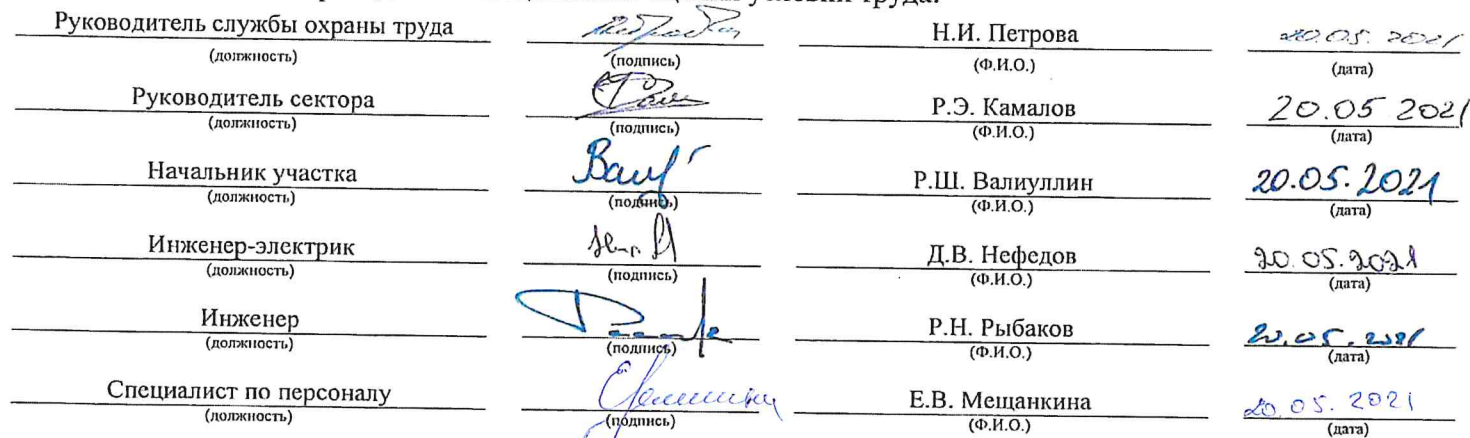 условий труда:
Руководитель службы охраны труда Н.И. Петрова 20.05.2021
(должность) (подпись) (Ф.И.О.) (дата)
Руководитель сектора Р.Э. Камалов 20.05 2021
(должность) (подпись) (Ф.И.О.) (дата)
Начальник участка Р.Ш. Валиуллин 20.05.2021
(должность) (подпись) (Ф.И.О.) (дата)
Инженер-электрик Д.В. Нефедов 20.05.2021
(должность) (подпись) (Ф.И.О.) (дата)
Инженер Р.Н. Рыбаков 20.05.2021
(должность) (подпись) (Ф.И.О.) (дата)
Специалист по персоналу Е.В. Мещанкина 20.05.2021
(должность) (подпись) (Ф.И.О.) (дата)